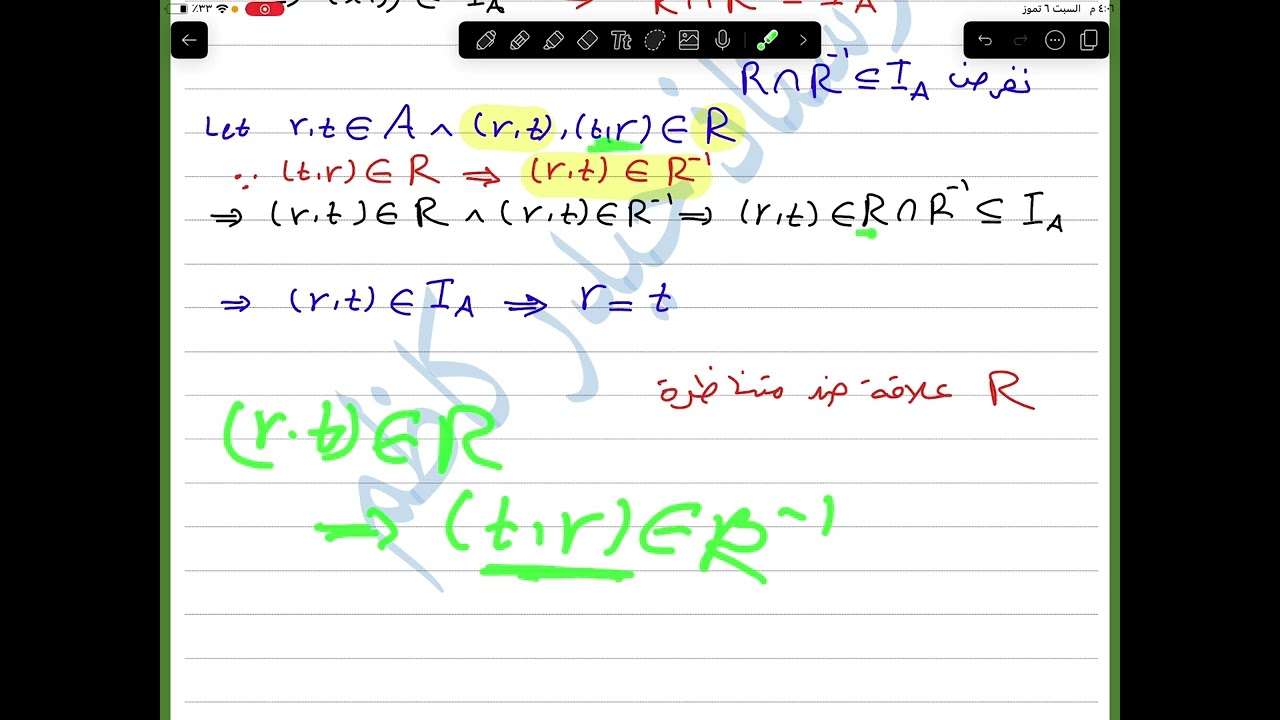 ٤:٠٦ م السبت ٦ تموز
٪٣٣
R ∩ R⁻¹ ⊆ I_A نفرض
Let r,t ∈ A ∧ (r,t),(t,r) ∈ R
∵ (t,r) ∈ R ⇒ (r,t) ∈ R⁻¹
⇒ (r,t) ∈ R ∧ (r,t) ∈ R⁻¹ ⇒ (r,t) ∈ R ∩ R⁻¹ ⊆ I_A
⇒ (r,t) ∈ I_A ⇒ r = t
R علاقة ضد متناظرة
(r,t) ∈ R
⇒ (t,r) ∈ R⁻¹